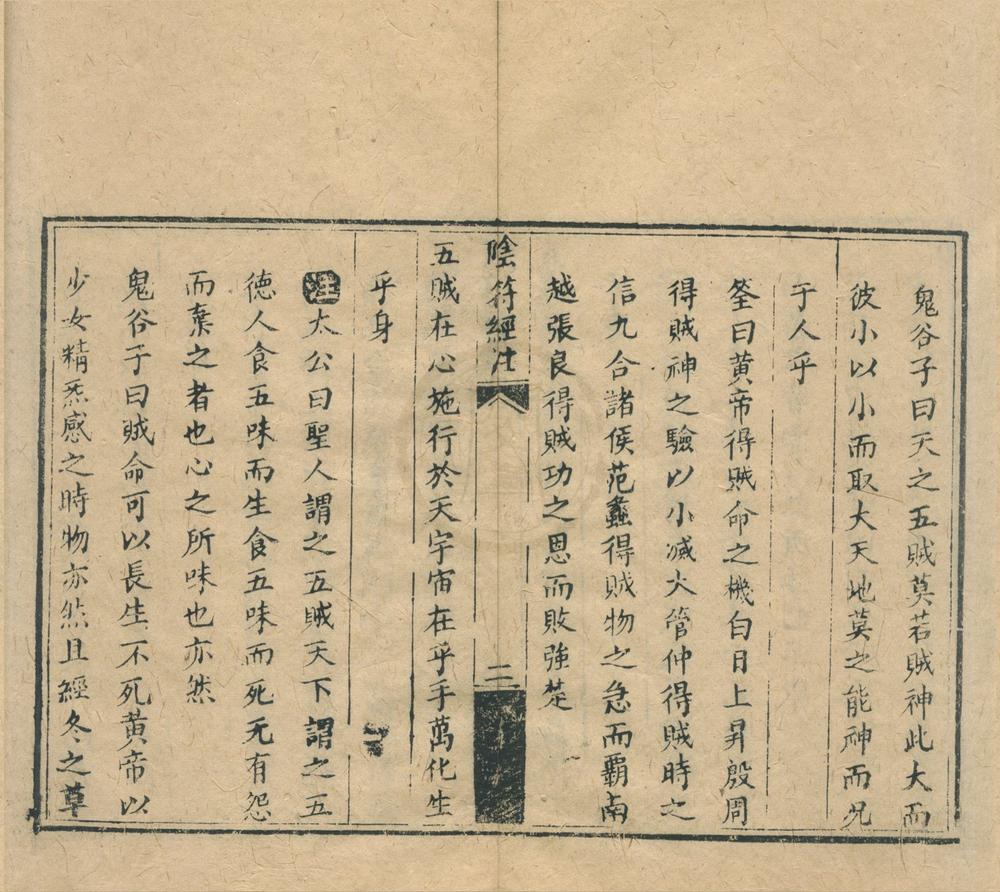 鬼谷子曰天之五賊莫若賊神此大而
彼小以小而取大天地莫之能神而况
于人乎
筌曰黃帝得賊命之機白日上昇殷周
得賊神之驗以小滅大管仲得賊時之
信九合諸侯范蠡得賊物之急而覇南
越張良得賊功之恩而敗強楚
陰符經注
二
五賊在心施行於天宇宙在乎手萬化生
乎身
注太公曰聖人謂之五賊天下謂之五
德人食五味而生食五味而死无有怨
而棄之者也心之所味也亦然
鬼谷子曰賊命可以長生不死黃帝以
少女精炁感之時物亦然且經冬之草